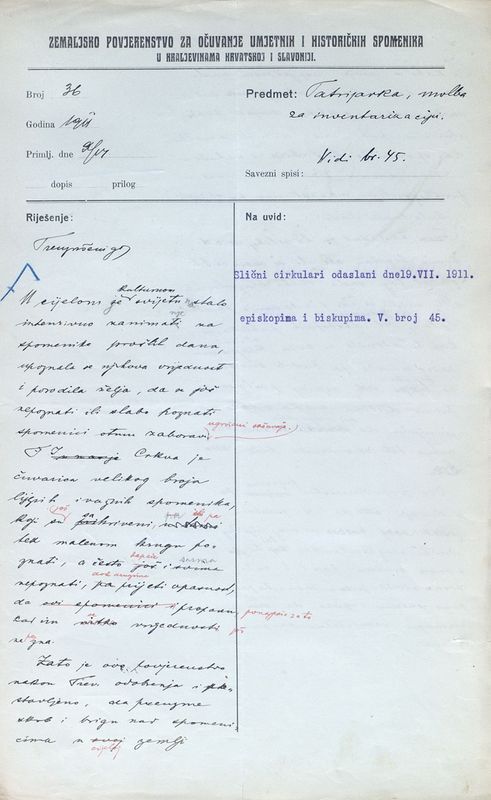 ZEMALJSKO POVJERENSTVO ZA OČUVANJE UMJETNIH I HISTORIČNIH SPOMENIKA
U KRALJEVINAMA HRVATSKOJ I SLAVONIJI.
Broj 36
Godina 1911
Primlj. dne
dopis prilog
Predmet: Patrijarka, molba
za inventarizaciju.
Vidi br. 45.
Savezni spisi:
Riješenje:
Na uvid:
Slični cirkulari odaslani dne19.VII. 1911.
episkopima i biskupima. V. broj 45.
kulturnom
U cijelom je svijetu stalo
intenzivno zanimati za
spomenike prošlih dana,
upoznala se njihova vrijednost
i porodila želja, da se još
nepoznati ili slabo poznati
spomenici otmu zaboravi
Crkva je
čuvarica velikog broja
lijepih i važnih spomenika,
koji su još skriveni,
tek malenom krugu po-
znati, a često još i svima
nepoznati, pa prijeti opasnost,
da ovi spomenici propanu
kad im vrijednosti
ne zna.
Zato je ovo povjerenstvo
nakon Prev. odobrenja i
stavljeno, da preuzme
skrb i brigu nad spomeni-
cima u svoj zemlji